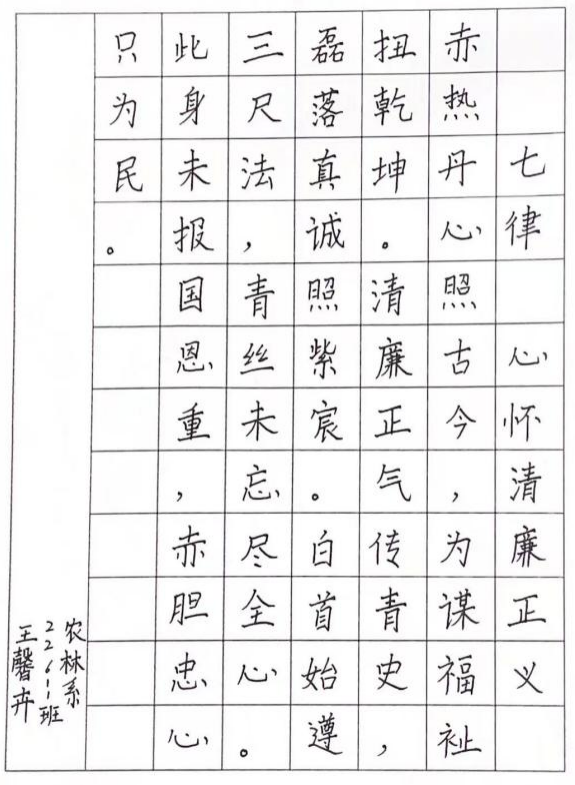 七律 心怀清廉正义
赤热丹心照古今，为谋福祉
扭乾坤。清廉正气传青史，
磊落真诚照紫宸。白首始遵
三尺法，青丝未忘尽全心。
此身未报国恩重，赤胆忠心
只为民。
农林系
22611班
王馨卉